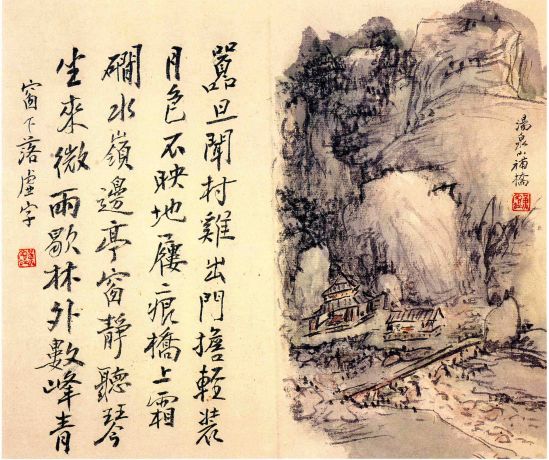 湯泉小補橋
囂旦聞村雞出門擔輕裝
月色不映地屨痕橋上霜
磵水嶺邊亭窗靜聽琴
坐來微雨歇林外數峰青
窗下落虛字